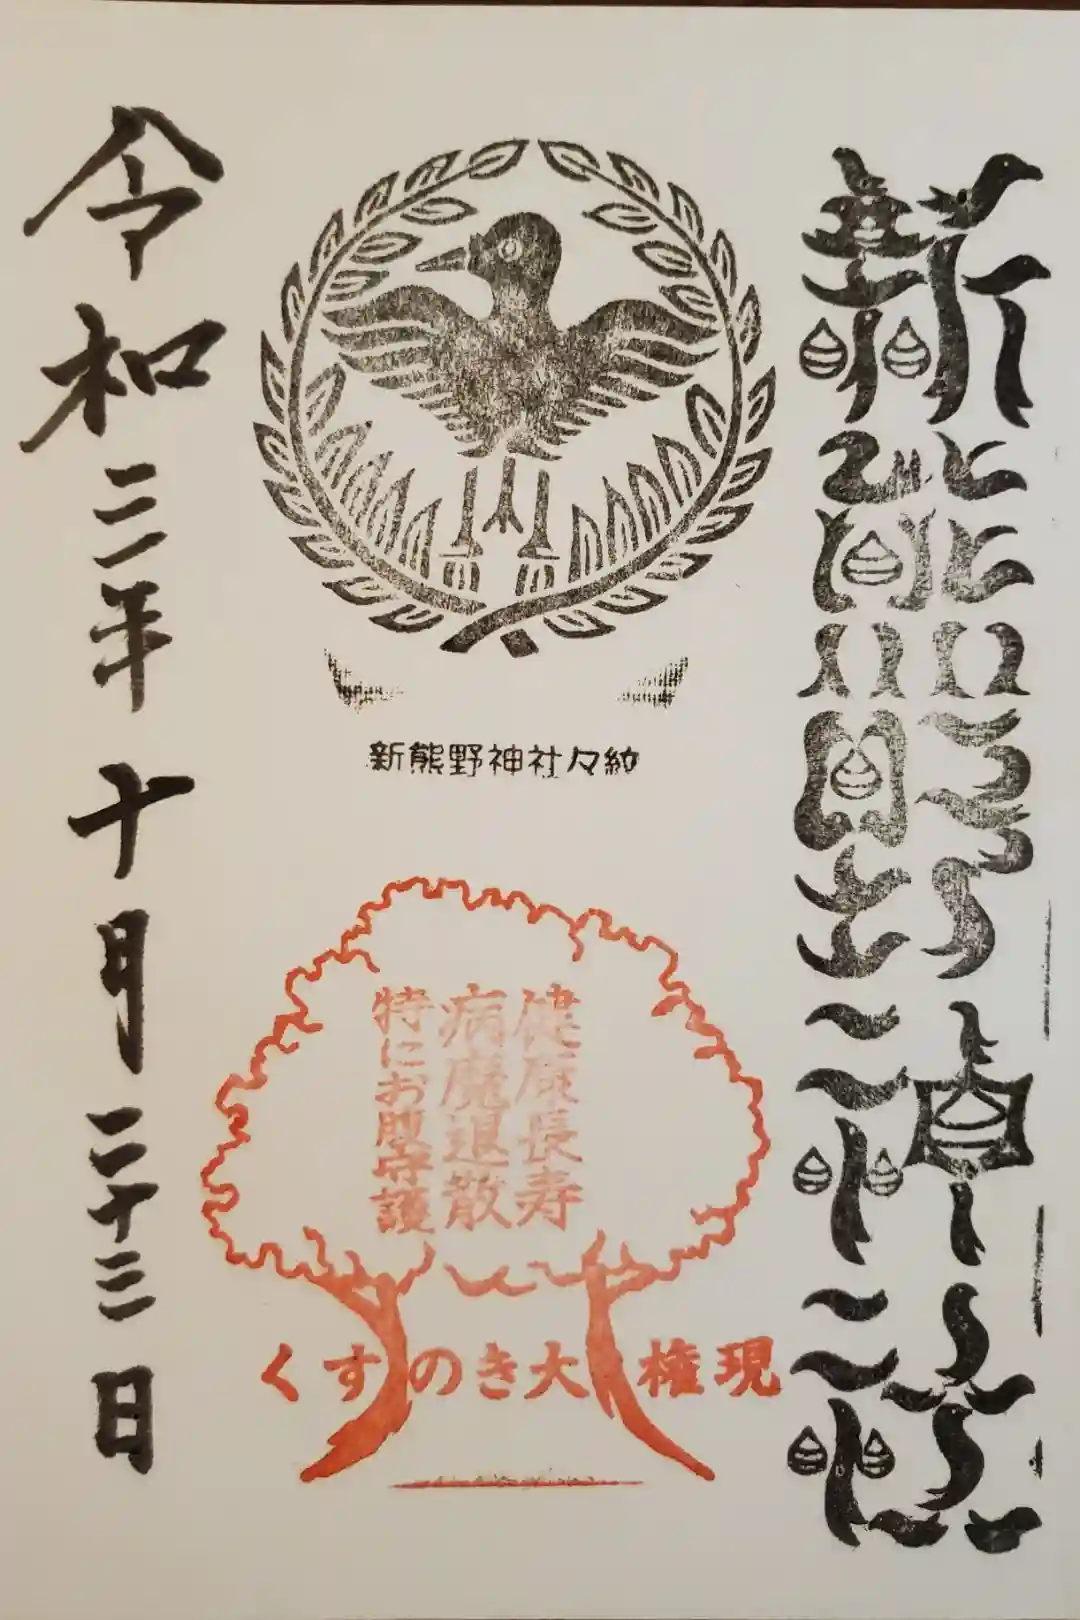 新熊野神社
新熊野神社々紋
健康長寿
病魔退散
特にお腹守護
くすのき大権現
令和三年十月二十三日